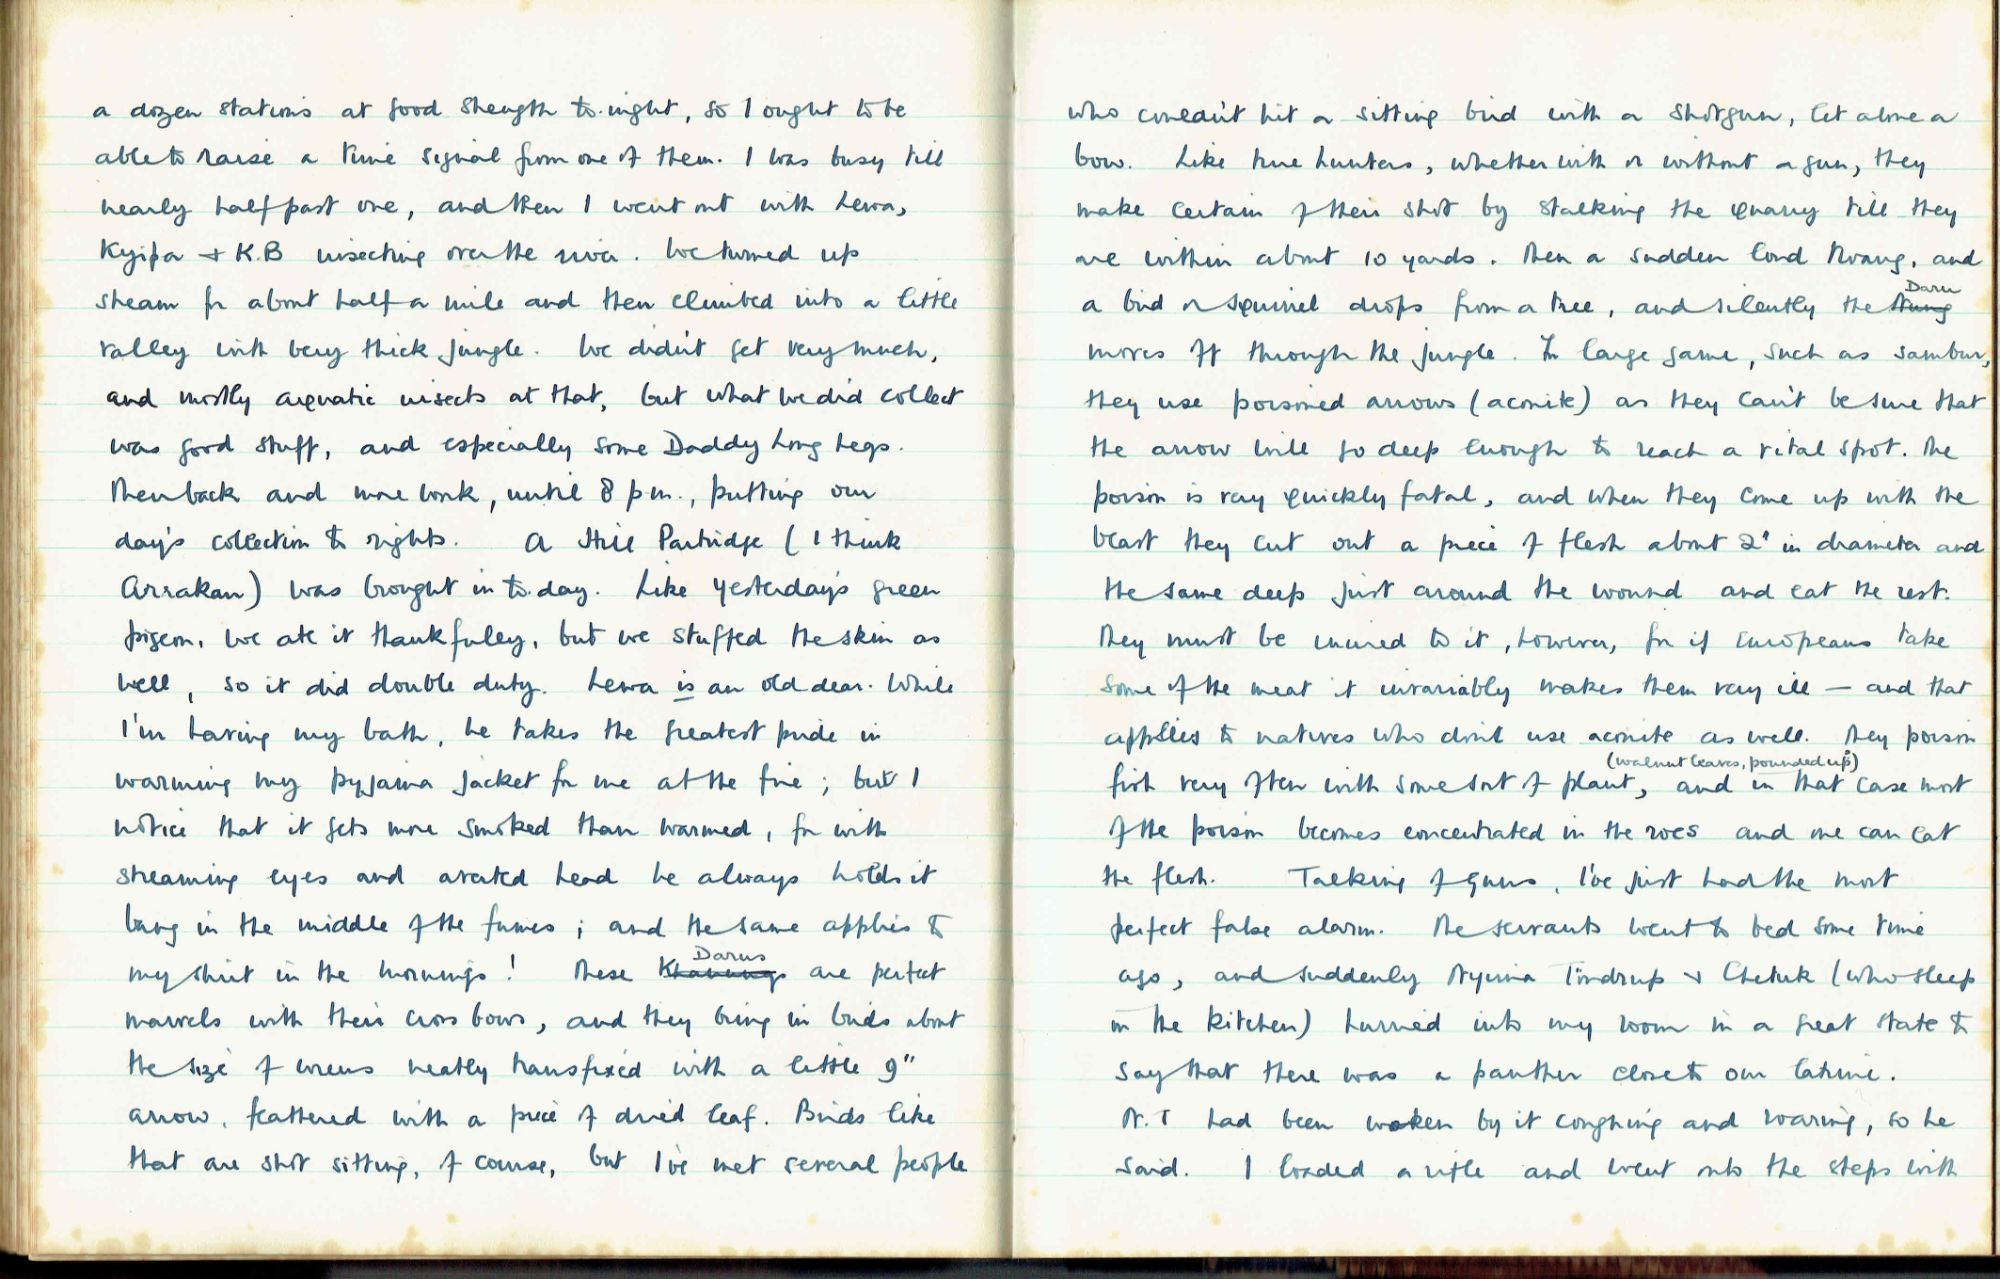 a dozen stations at good strength to-night, so I ought to be
able to raise a time signal from one of them. I was busy till
nearly half past one, and then I went out with Lewa,
Kyipa + K.B insecting over the river. We turned up
stream for about half a mile and then climbed into a little
valley with very thick jungle. We didn't get very much,
and mostly aquatic insects at that, but what we did collect
was good stuff, and especially some Daddy Long Legs.
Then back and more work, until 8 p.m., putting our
day's collection to rights. A Hill Partridge (I think
Arrakan) was brought in to-day. Like yesterday's green
pigeon, we ate it thankfully, but we stuffed the skin as
well, so it did double duty. Lewa is an old dear. While
I'm having my bath, he takes the greatest pride in
warming my pyjama jacket for me at the fire; but I
notice that it gets more smoked than warmed, for with
streaming eyes and averted head he always holds it
bang in the middle of the fumes; and the same applies to
my shirt in the mornings! These Darus are perfect
marvels with their cross bows, and they bring in birds about
the size of wrens neatly transfixed with a little 9"
arrow, feathered with a piece of dried leaf. Birds like
that are shot sitting, of course, but I've met several people
who couldn't hit a sitting bird with a shotgun, let alone a
bow. Like true hunters, whether with or without a gun, they
make certain of their shot by stalking the quarry till they
are within about 10 yards. Then a sudden loud twang, and
a bird or squirrel drops from a tree, and silently the Daru
moves off through the jungle. For large game, such as sambur,
they use poisoned arrows (aconite) as they can't be sure that
the arrow will go deep enough to reach a vital spot. The
poison is very quickly fatal, and when they come up with the
beast they cut out a piece of flesh about 2" in diameter and
the same deep just around the wound and eat the rest.
They must be inured to it, however, for if Europeans take
some of the meat it invariably makes them very ill — and that
applies to natives who don't use aconite as well. They poison
(walnut leaves, pounded up)
fish very often with some sort of plant, and in that case most
of the poison becomes concentrated in the roes and one can eat
the flesh. Talking of guns, I've just had the most
perfect false alarm. The servants went to bed some time
ago, and suddenly Nyima Tindrup + Chetuk (who sleep
in the kitchen) hurried into my room in a great state to
say that there was a panther close to our latrine.
N.T had been woken by it coughing and roaring, so he
said. I loaded a rifle and went onto the steps with